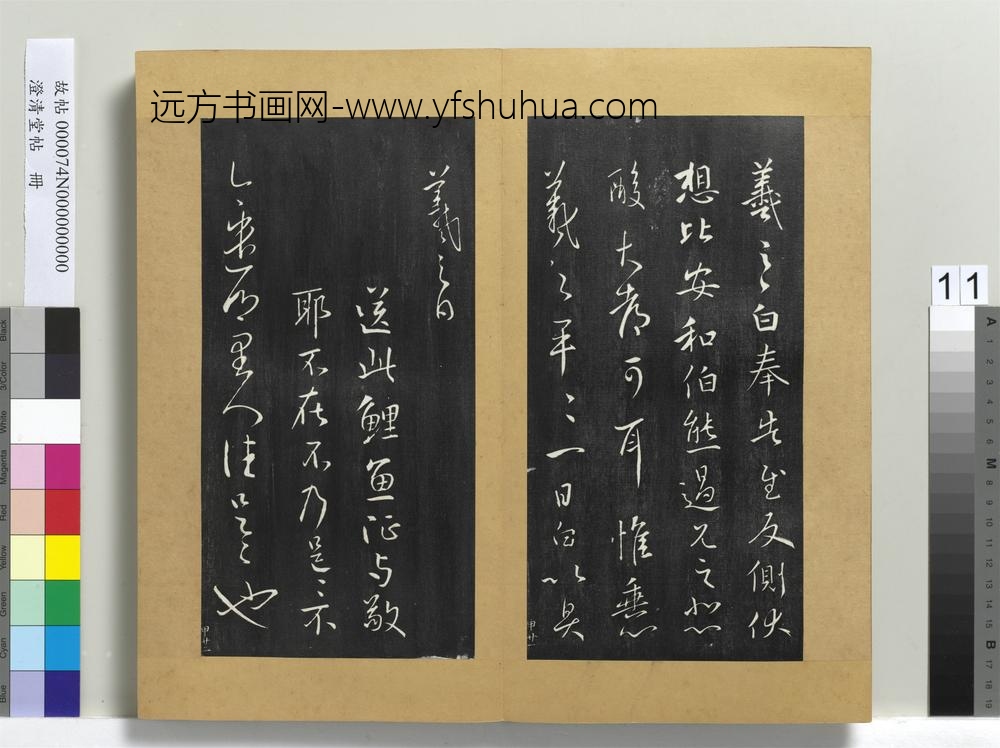 远方书画网-www.yfshuhua.com
故帖 000074N000000000
澄清堂帖 冊
11
羲之白奉告至反側伏
想比安和伯熊過兄之悲
酸大都可耳 惟垂
羲之年三一日白 以具
羲之白
送此鯉魚 与敬
耶不在不乃是
里人佳 也
Black
3/Color
White
Magenta
Red
Yellow
Green
Cyan
Blue
A
1
2
3
4
5
6
M
8
9
10
11
12
13
14
15
B
17
18
19